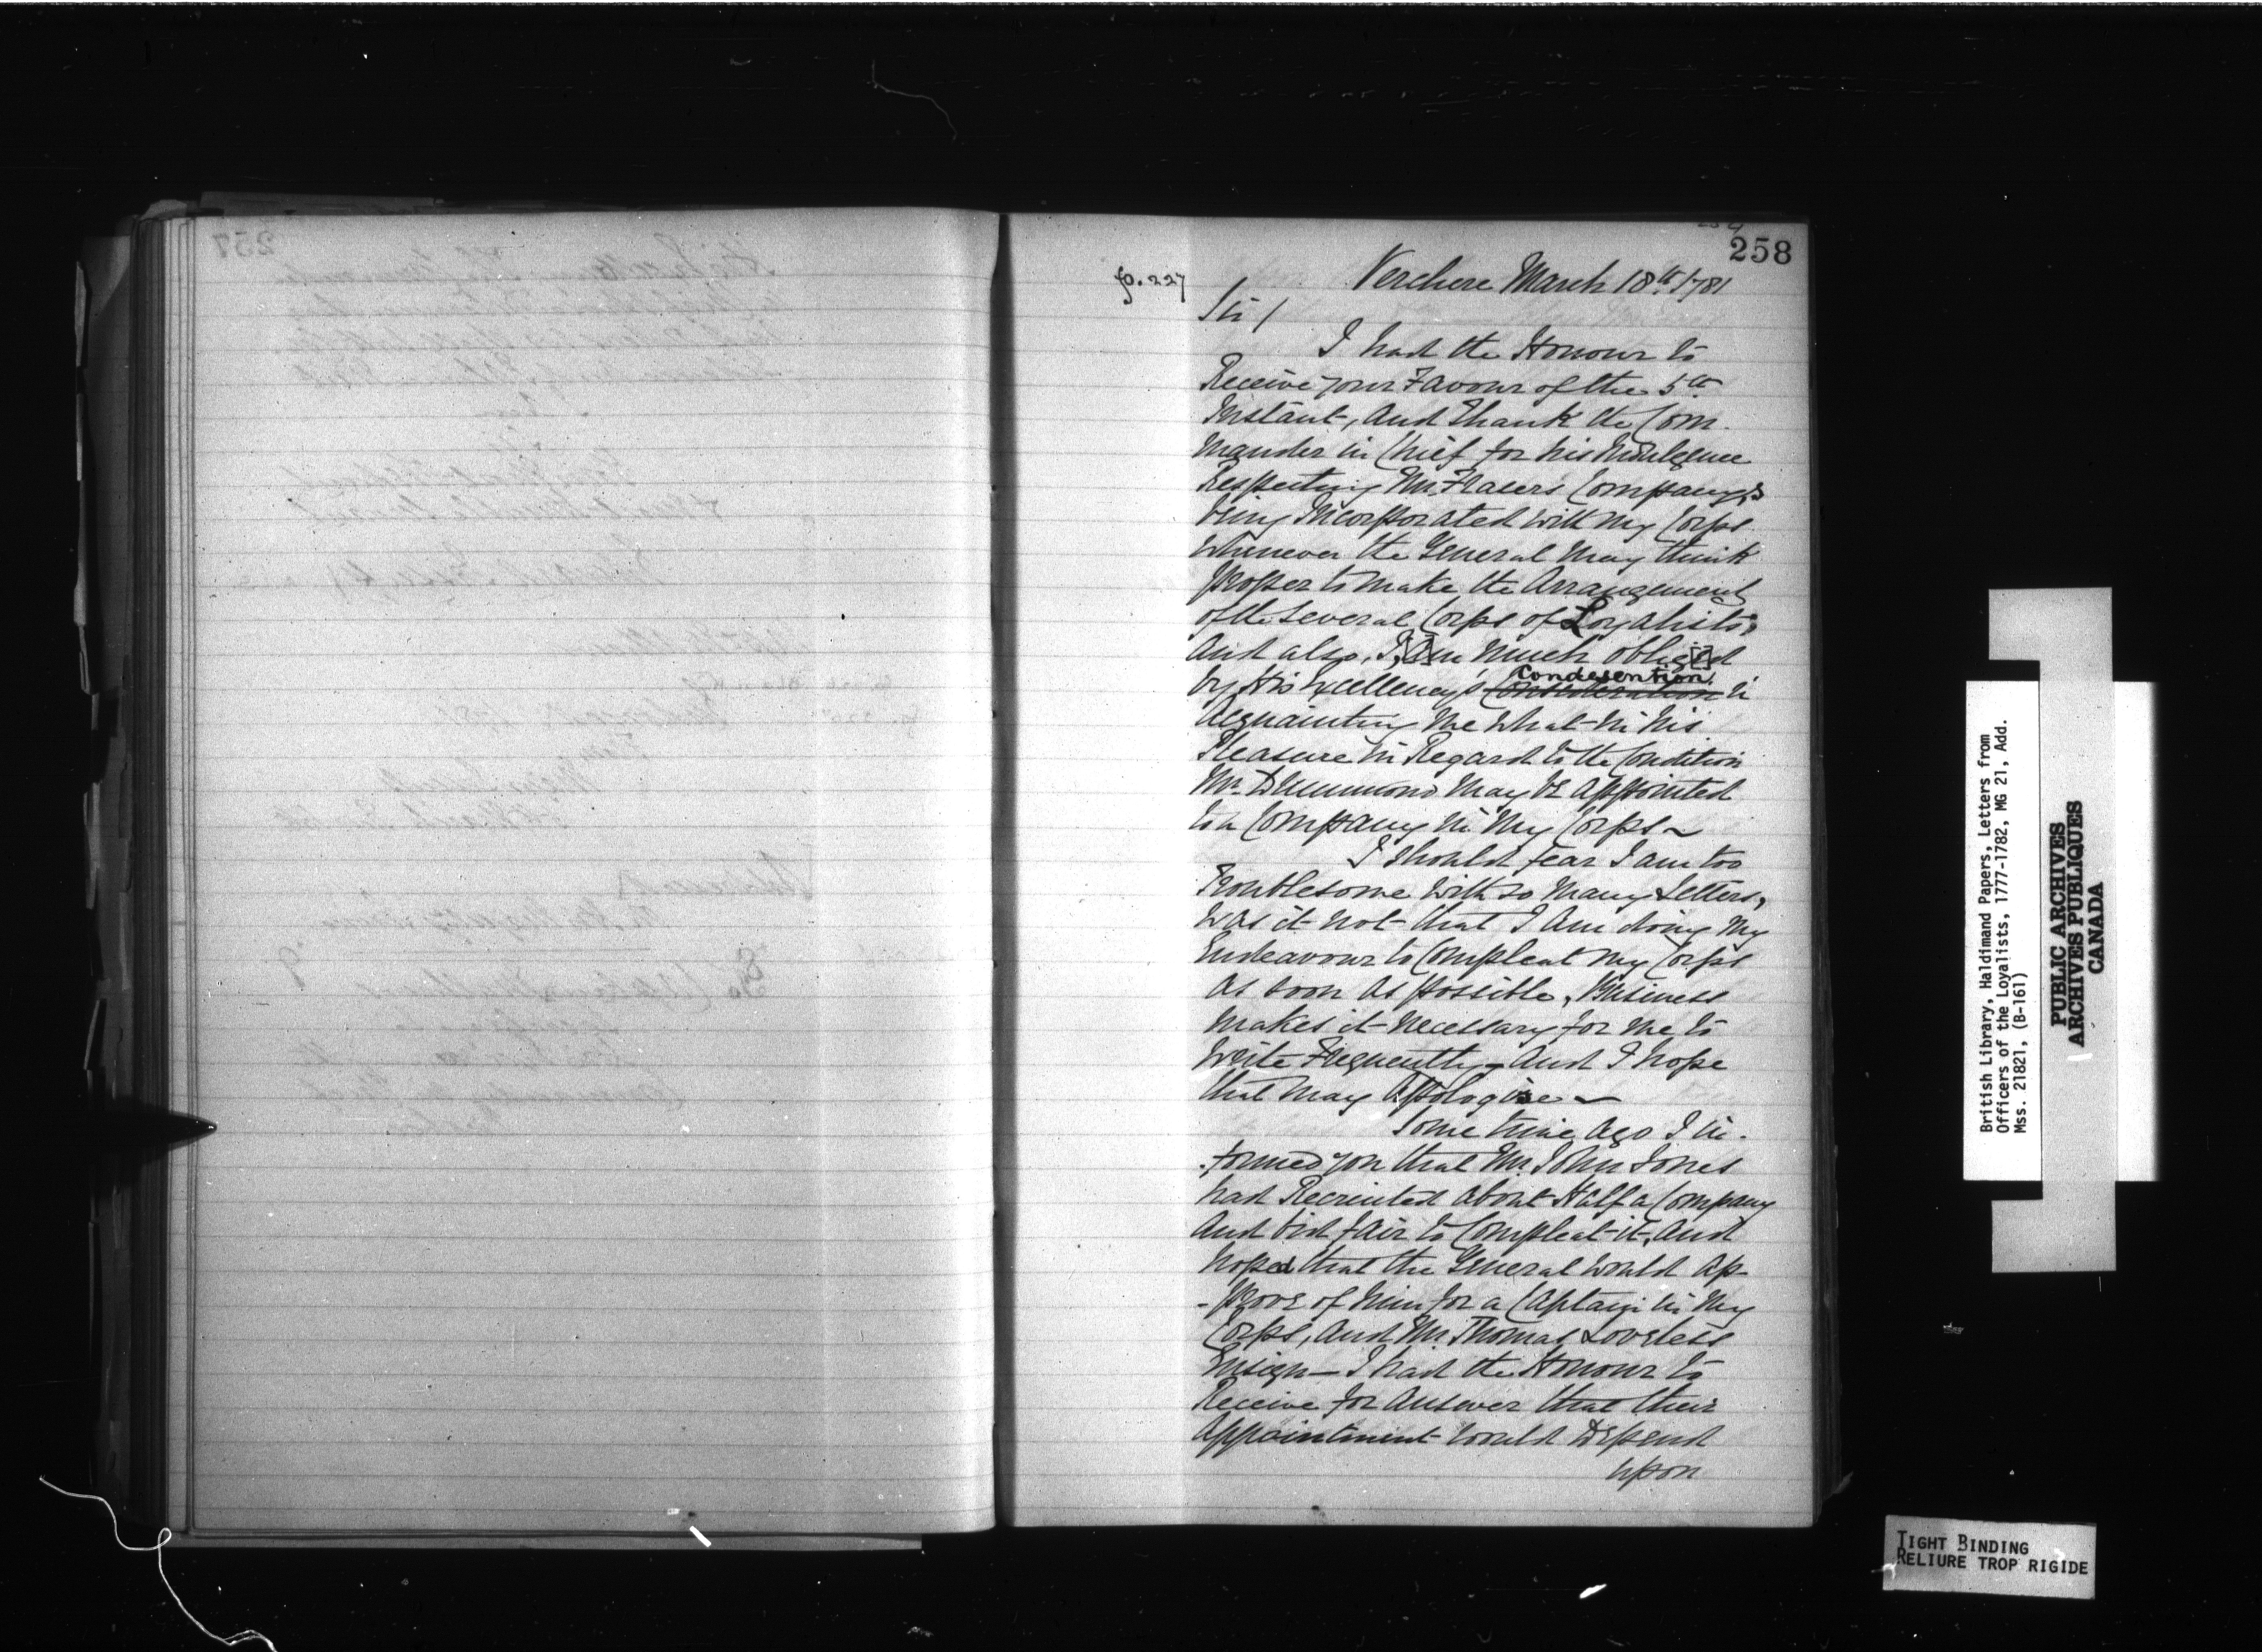 258
p. 227
Verchere March 18th 1781
Sir /
I had the Honour to
Receive your Favour of the 5th
Instant, And Thank the Com-
mander in Chief for his Indulgence
Respecting Mr. Frasers Company's
being Incorporated with my Corps
whenever the General may think
proper to make the Arrangement
of the several Corps of Loyalists,
And also, I am much obliged
by His Excellency's Consideration Condesention in
Acquainting me what is his
Pleasure in Regard to the Condition
Mr. Drummond may be appointed
to a Company in my Corps ~
I should fear I am too
Troublesome with so many Letters,
was it not that I am doing my
Endeavour to Compleat my Corps
as soon as possible, Business
makes it necessary for me to
write Frequently, And I hope
that may Apologise ~
Some time ago I in-
-formed you that Mr. John Jones
had Recruited about Half a Company
And bid fair to Compleat it, and
hoped that the General would ap-
-prove of him for a Captain in my
Corps, And Mr. Thomas Loveless
Ensign — I had the Honour to
Receive for Answer that their
Appointment would Depend
upon
British Library, Haldimand Papers, Letters from
Officers of the Loyalists, 1777-1782, MG 21, Add.
Mss. 21821, (B-161)
PUBLIC ARCHIVES
ARCHIVES PUBLIQUES
CANADA
TIGHT BINDING
RELIURE TROP RIGIDE